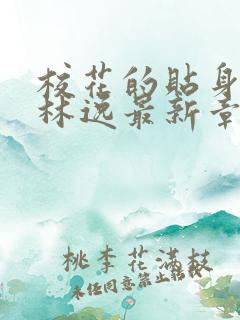 校花的贴身
林逸最新章
桃李花满枝
未经同意禁止转载